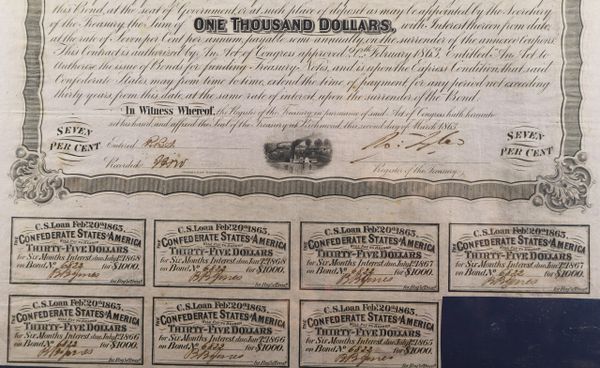 this Bond, at the Seat of Government or at such place of deposit as may be appointed by the Secretary
of the Treasury, the Sum of ONE THOUSAND DOLLARS, with Interest thereon from date
at the rate of Seven per Cent per annum, payable semi-annually on the surrender of the annexed Coupons.
This Contract is authorized by an Act of Congress approved 20th February 1863, Entitled "An Act to
Authorize the issue of Bonds for funding Treasury Notes, and is upon the Express Condition, that said
Confederate States, may from time to time, extend the time of payment for any period not exceeding
thirty years from this date, at the same rate of interest, upon the surrender of the Bond.
In Witness Whereof, the Register of the Treasury, in pursuance of said Act of Congress hath hereunto
set his hand, and affixed the Seal of the Treasury, at Richmond, this second day of March 1863.
SEVEN PER CENT
Entered
Recorded
Register of the Treasury.
SEVEN PER CENT
C.S. Loan Feby. 20th 1863.
THE CONFEDERATE STATES OF AMERICA
Will Pay to Bearer
THIRTY-FIVE DOLLARS
for Six Months Interest due July 1st 1868
on Bond No. 6822 for $1000.
for Reg'r Treas'y
C.S. Loan Feby. 20th 1863.
THE CONFEDERATE STATES OF AMERICA
Will Pay to Bearer
THIRTY-FIVE DOLLARS
for Six Months Interest due Jany 1st 1868
on Bond No. 6822 for $1000.
for Reg'r Treas'y
C.S. Loan Feby. 20th 1863.
THE CONFEDERATE STATES OF AMERICA
Will Pay to Bearer
THIRTY-FIVE DOLLARS
for Six Months Interest due July 1st 1867
on Bond No. 6822 for $1000.
for Reg'r Treas'y
C.S. Loan Feby. 20th 1863.
THE CONFEDERATE STATES OF AMERICA
Will Pay to Bearer
THIRTY-FIVE DOLLARS
for Six Months Interest due Jany 1st 1867
on Bond No. 6822 for $1000.
for Reg'r Treas'y
C.S. Loan Feby. 20th 1863.
THE CONFEDERATE STATES OF AMERICA
Will Pay to Bearer
THIRTY-FIVE DOLLARS
for Six Months Interest due July 1st 1866
on Bond No. 6822 for $1000.
for Reg'r Treas'y
C.S. Loan Feby. 20th 1863.
THE CONFEDERATE STATES OF AMERICA
Will Pay to Bearer
THIRTY-FIVE DOLLARS
for Six Months Interest due Jany 1st 1866
on Bond No. 6822 for $1000.
for Reg'r Treas'y
C.S. Loan Feby. 20th 1863.
THE CONFEDERATE STATES OF AMERICA
Will Pay to Bearer
THIRTY-FIVE DOLLARS
for Six Months Interest due July 1st 1865
on Bond No. 6822 for $1000.
for Reg'r Treas'y